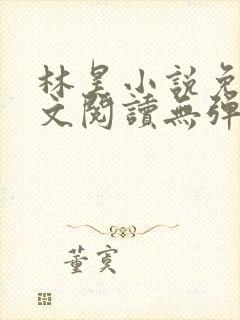 林昊小説免
文閱讀無彈
董寞